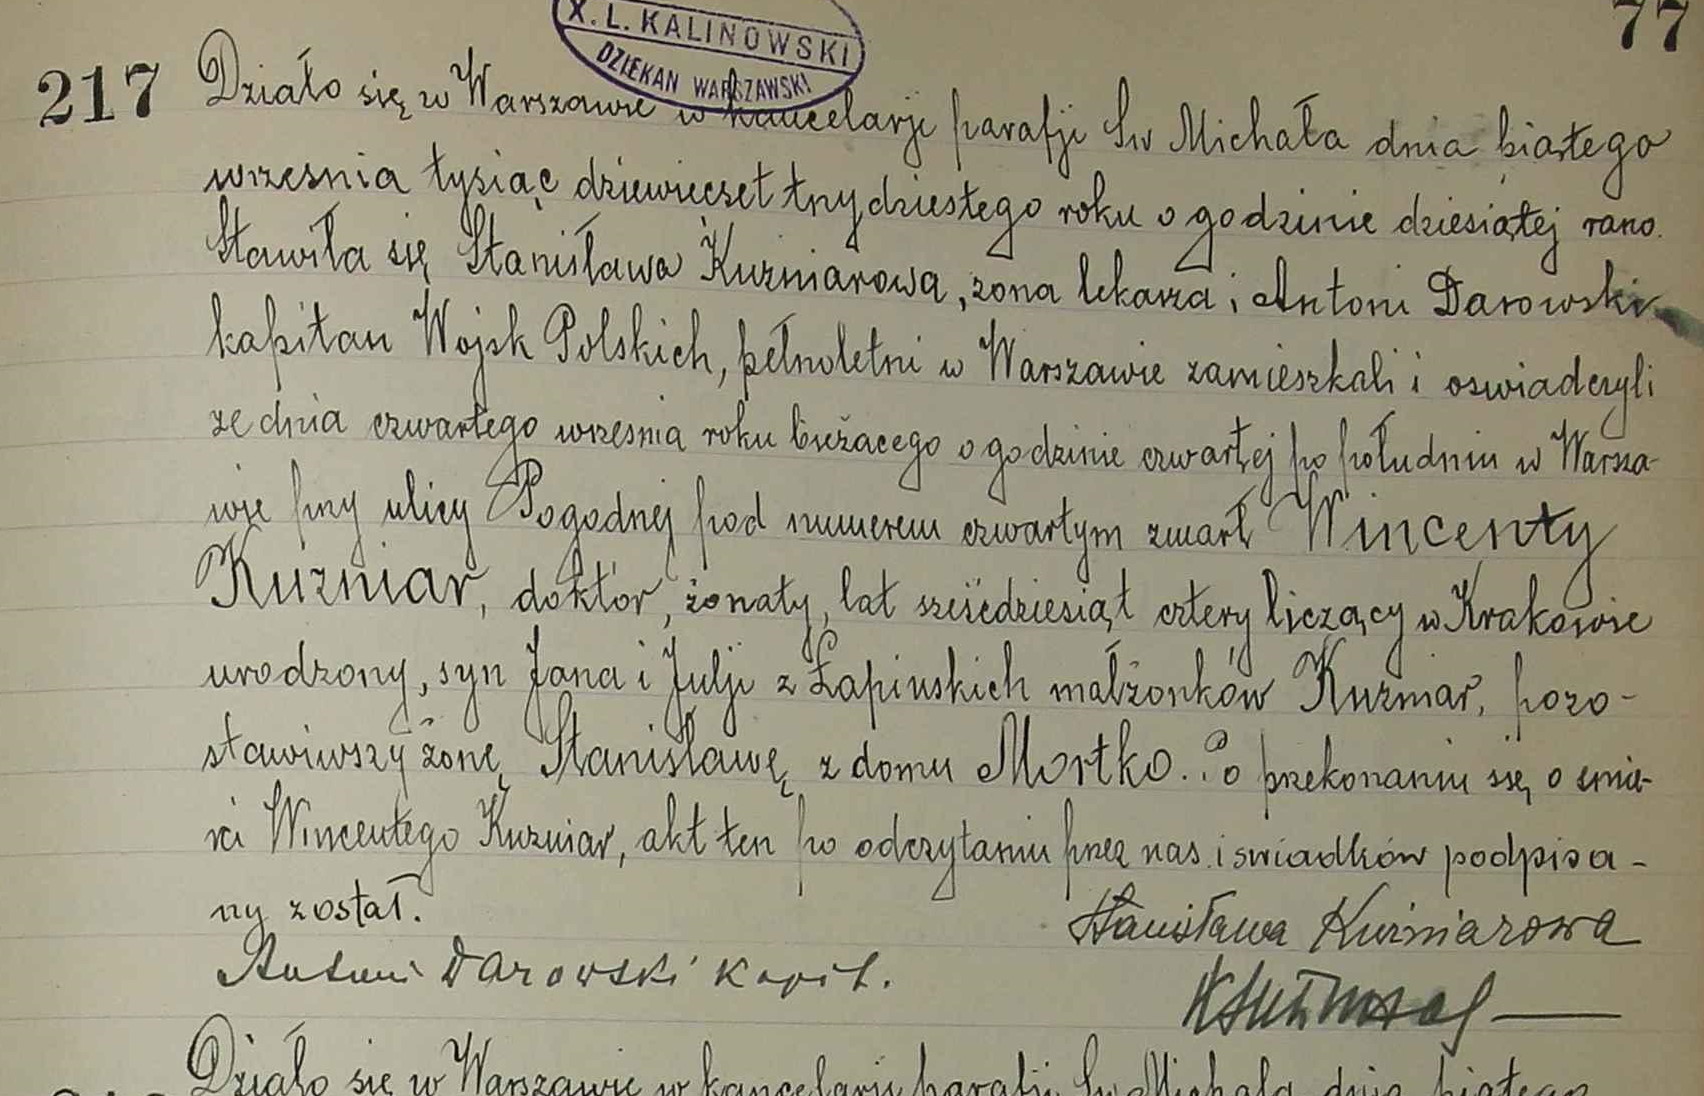 77
X. L. KALINOWSKI
DZIEKAN WARSZAWSKI
217 Działo się w Warszawie w kancelarji parafji Św Michała dnia piątego
wrzesnia tysiąc dziewiecset trzydziestego roku o godzinie dziesiątej rano.
Stawiła się Stanisława Kuzniarowa, zona lekarza i Antoni Darowski
kapitan Wojsk Polskich, pełnoletni w Warszawie zamieszkali i oswiadczyli
ze dnia czwartego wrzesnia roku bieżacego o godzinie czwartej po południu w Warsza-
wie przy ulicy Pogodnej pod numerem czwartym zmarł Wincenty
Kuzniar, doktór, żonaty, lat sześcdziesiąt cztery liczący w Krakowie
urodzony, syn Jana i Julji z Łapinskich małżonków Kuzniar, pozo-
stawiwszy żonę Stanisławę z domu Mortko. Po przekonaniu się o smie-
rci Wincentego Kuzniar, akt ten po odczytaniu przez nas i swiadków podpisa-
ny został.
Stanisława Kuźniarowa
Antoni Darowski kapit.
Działo się w Warszawie w kancelarji parafji Św Michała dnia piątego